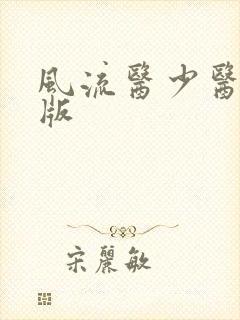 風流醫少醫
版
宋麗敏